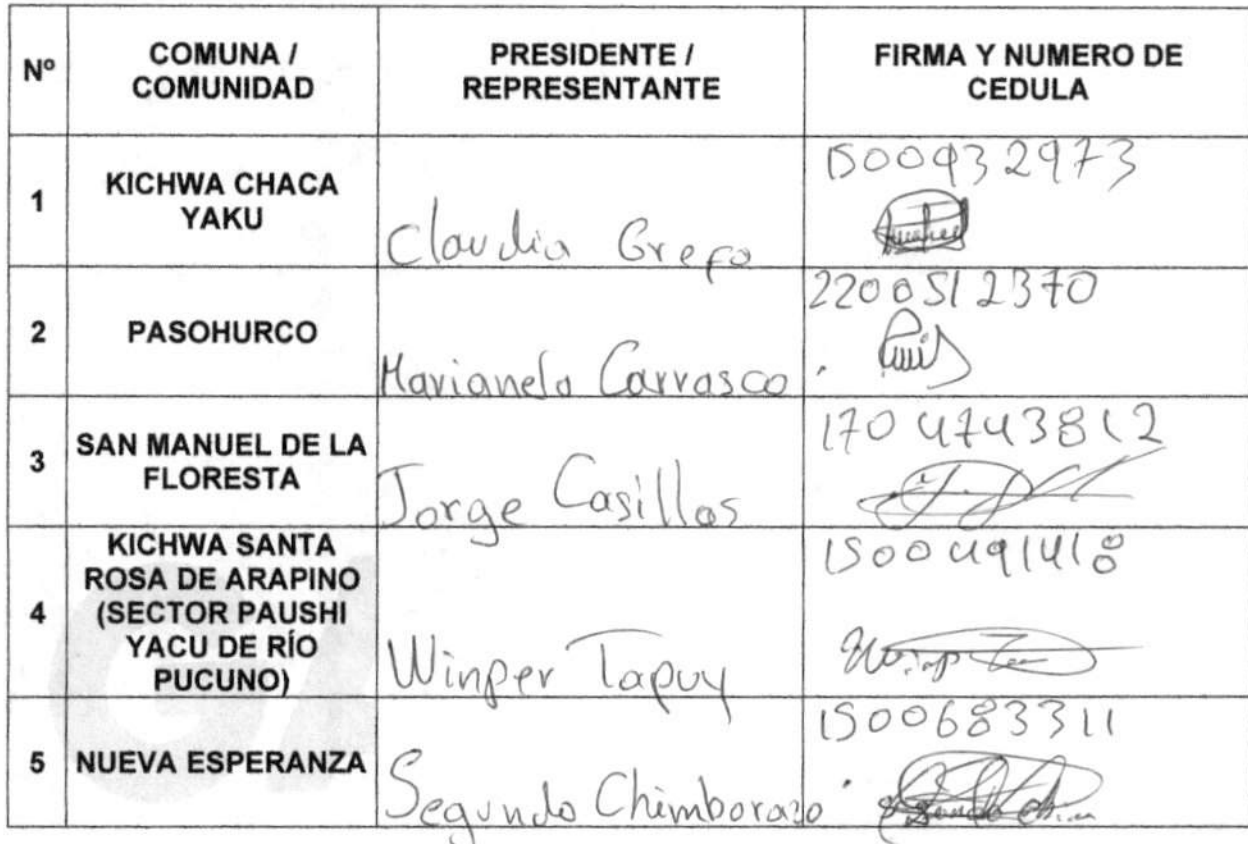 Nº
COMUNA /
COMUNIDAD
PRESIDENTE /
REPRESENTANTE
FIRMA Y NUMERO DE
CEDULA
1
KICHWA CHACA
YAKU
Claudia Grefa
1500432973
2
PASOHURCO
Marianela Carrasco
2200512370
3
SAN MANUEL DE LA
FLORESTA
Jorge Casillas
1704743812
4
KICHWA SANTA
ROSA DE ARAPINO
(SECTOR PAUSHI
YACU DE RÍO
PUCUNO)
Winper Tapuy
1500491418
5
NUEVA ESPERANZA
Segundo Chimborazo
1500683311